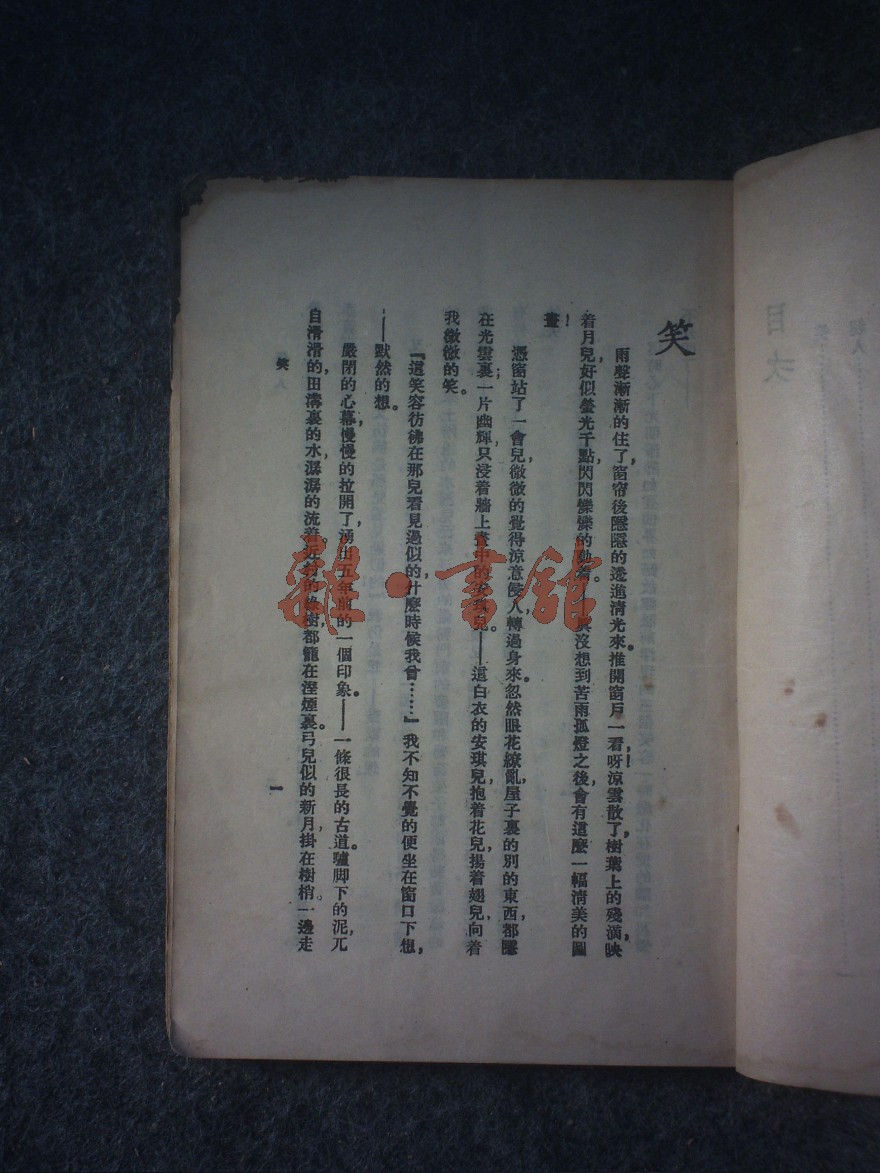 笑
雨聲漸漸的住了，窗帘後隱隱的透進清光來。推開窗戶一看，呀！涼雲散了，樹葉上的殘滴，映
着月兒，好似螢光千點，閃閃爍爍的動着。——眞沒想到苦雨孤燈之後，會有這麼一幅清美的圖
畫！
憑窗站了一會兒，微微的覺得涼意侵人。轉過身來，忽然眼花繚亂，屋子裏的別的東西，都隱
在光雲裏；一片幽輝，只浸着牆上畫中的安琪兒。——這白衣的安琪兒，抱着花兒，揚着翅兒，向着
我微微的笑。
『這笑容彷彿在那兒看見過似的，什麼時候，我曾……』我不知不覺的便坐在窗口下想，
——默然的想。
嚴閉的心幕，慢慢的拉開了，湧出五年前的一個印象。——一條很長的古道。驢脚下的泥，兀
自滑滑的，田溝裏的水，潺潺的流着。近村的綠樹，都籠在溼煙裏。弓兒似的新月，掛在樹梢。一邊走
笑
一
目次
雜·書館